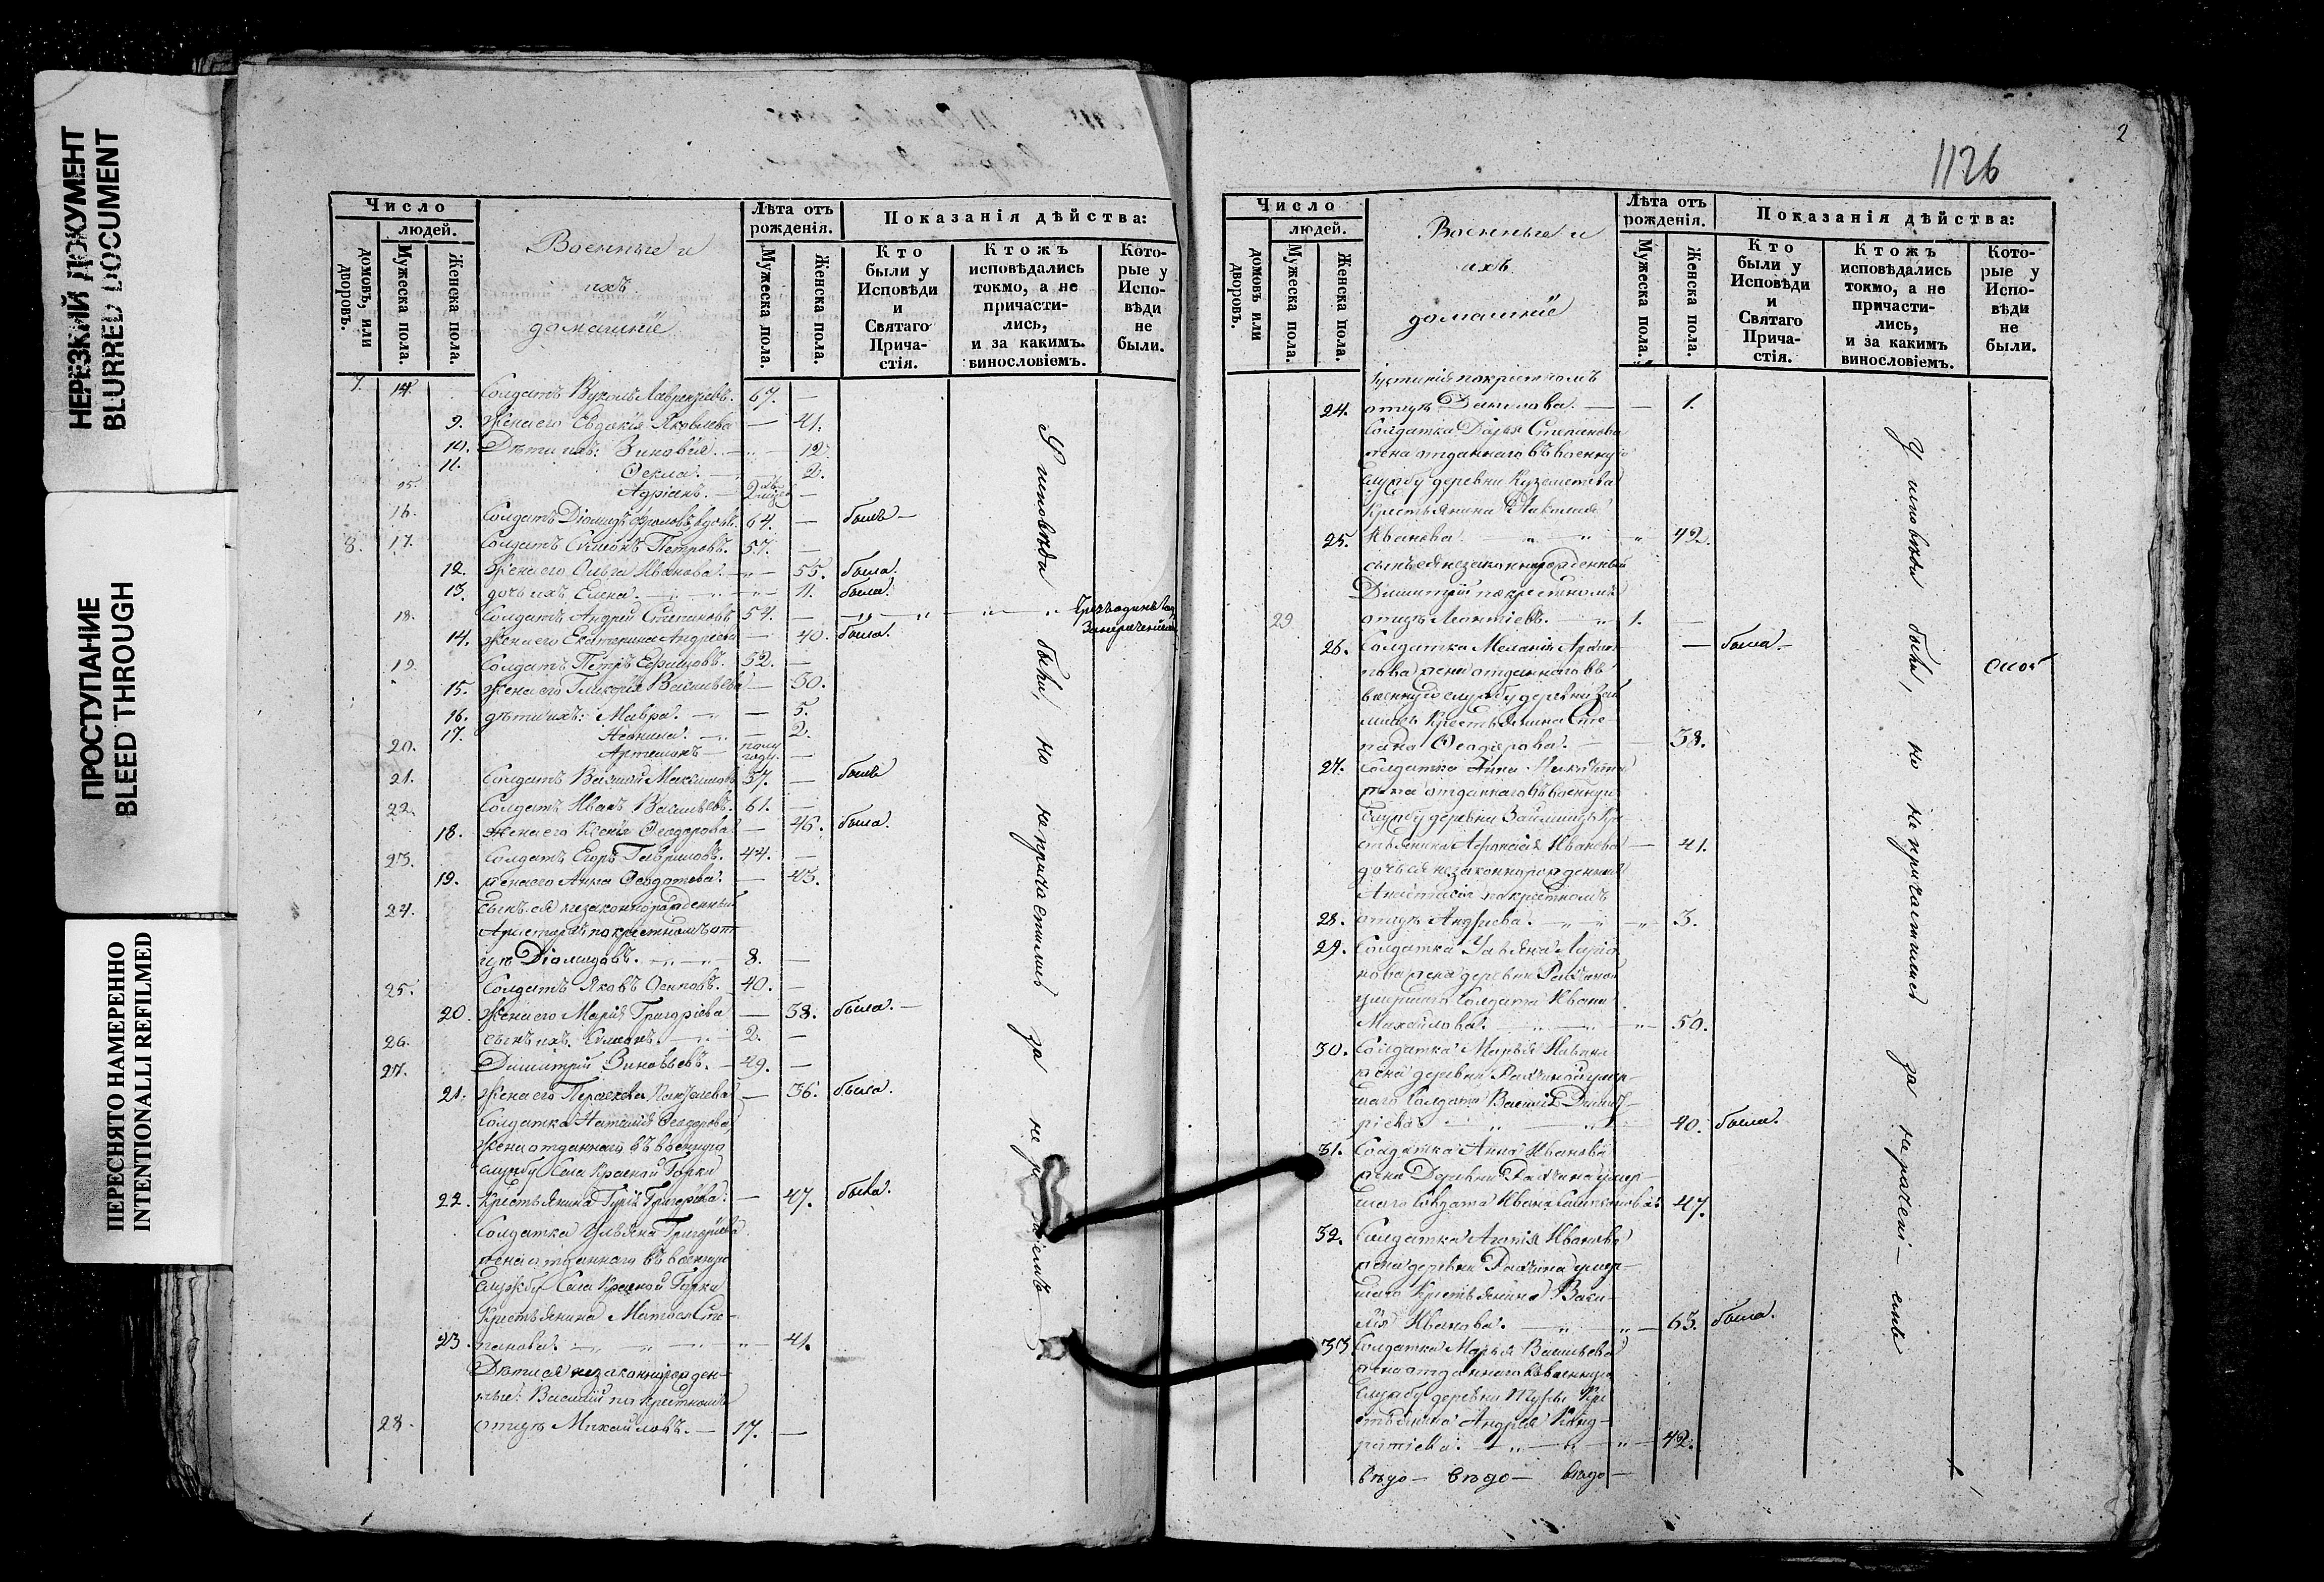 НЕРЕЗКИЙ ДОКУМЕНТ
BLURRED DOCUMENT
ПРОСТУПАНИЕ
BLEED THROUGH
ПЕРЕСНЯТО НАМЕРЕННО
INTENTIONALLI REFILMED
Число
людей.
домовъ, или дворовъ.
Мужеска пола.
Женска пола.
Военные и
ихъ
домашніе
Лѣта отъ рожденія.
Мужеска пола.
Женска пола.
Показанія дѣйства:
Кто были у Исповѣди и Святаго Прича-стія.
Ктожъ исповѣдались токмо, а не причасти-лись, и за какимъ винословіемъ.
Кото-рые у Испо-вѣди не были.
7. 14. Солдатъ Вуколъ Лаврентіевъ. 67. —
9. Жена его Евдокія Яковлева — 41.
10. Дѣти ихъ: Зиновія. — 12
11. Фекла. — 2.
15. Адріанъ. — 2
16. Солдатъ Діомидъ Фроловъ, вдовъ. 64. — былъ —
8. 17. Солдатъ Симіонъ Петровъ. 57. —
12. Жена его Ольга Иванова. — 55. была.
13. дочь ихъ Елена. — 11. была.
18. Солдатъ Андрей Степановъ 54. —
14. Жена его Екатерина Андреева — 40. была.
19. Солдатъ Петръ Ефимовъ. 52. —
15. Жена его Гликерія Васильева — 30.
16. дѣти ихъ: Мавра. — 5.
17. — 2.
20. Артемонъ — полу годъ. —
21. Солдатъ Василій Максимовъ 37. — былъ
22. Солдатъ Иванъ Васильевъ. 61. —
18. жена его Ксенія Феодорова — 46. была.
23. Солдатъ Егоръ Гавриловъ. 44. —
19. жена его Анна Феодотова. — 43.
24. сынъ ея незаконнорожденный
по крестному от
цу Діомидовъ. — 8. —
25. Солдатъ Яковъ Осиповъ. — 40. —
20. Жена его Марія Григоріева — 38. была. —
26. сынъ ихъ — 2. —
27. Димитрій Зиновьевъ. — 49. —
21. Жена его Параскева — 36. была.
Солдатка Наталія Феодорова,
жена отданнаго въ военную
службу Села Красной Горки
22. Крестьянина Гурія Григорьева. — 47. была.
Солдатка Ульяна Григорьева
жена отданнаго въ военную
службу Села Красной Горки
Крестьянина Матвея Сте-
23. панова. — 41.
Дѣти ея незаконнорожден-
ные: Василій по крестному
28. отцу Михайловъ. — 17. —
У исповѣди были, но не причастились за
2
1126
Число
людей.
домовъ или дворовъ.
Мужеска пола.
Женска пола.
Военные и
ихъ
домашніе
Лѣта отъ рожденія.
Мужеска пола.
Женска пола.
Показанія дѣйства:
Кто были у Исповѣди и Святаго Прича-стія.
Ктожъ исповѣдались токмо, а не причасти-лись, и за какимъ винословіемъ.
Кото-рые у Испо-вѣди не были.
Іустинія по крестному
24. отцу Данилова. — — 1.
Солдатка Дарья Степанова
жена отданнаго въ военную
службу деревни
Крестьянина Николая
25. Иванова. — 42.
сынъ ея незаконнорожденный
Димитрій по крестному
29. отцу Леонтіевъ. 1. —
26. Солдатка Меланія — была. —
жена отданнаго въ
военную службу деревни Зай
мищъ Крестьянина Сте-
пана Феодорова. — 38.
27. Солдатка Анна Никитина
жена отданнаго въ военную
службу деревни Займищъ Кре
стьянина Афанасія Иванова — 41.
дочь ея незаконнорожденная
Анастасія по крестному
28. отцу Андреева. — 3.
29. Солдатка Ульяна Ларіо
нова жена деревни
умершаго Солдата Ивана
Михайлова. — 50.
30. Солдатка Марья
жена деревни умер-
шаго Солдата Василія Димит-
ріева. 40. была.
31. Солдатка Анна Иванова
жена Деревни умер-
шаго Солдата Ивана 47.
32. Солдатка Агапія Иванова
жена деревни умер-
шаго Крестьянина Васи-
лія Иванова. — 65. была.
33. Солдатка Марья Васильева
жена отданнаго въ военную
службу деревни Кре
стьянина Андрея Конд-
ратіева. — 42.
У исповѣди были, но не причастились за нерачені- емъ